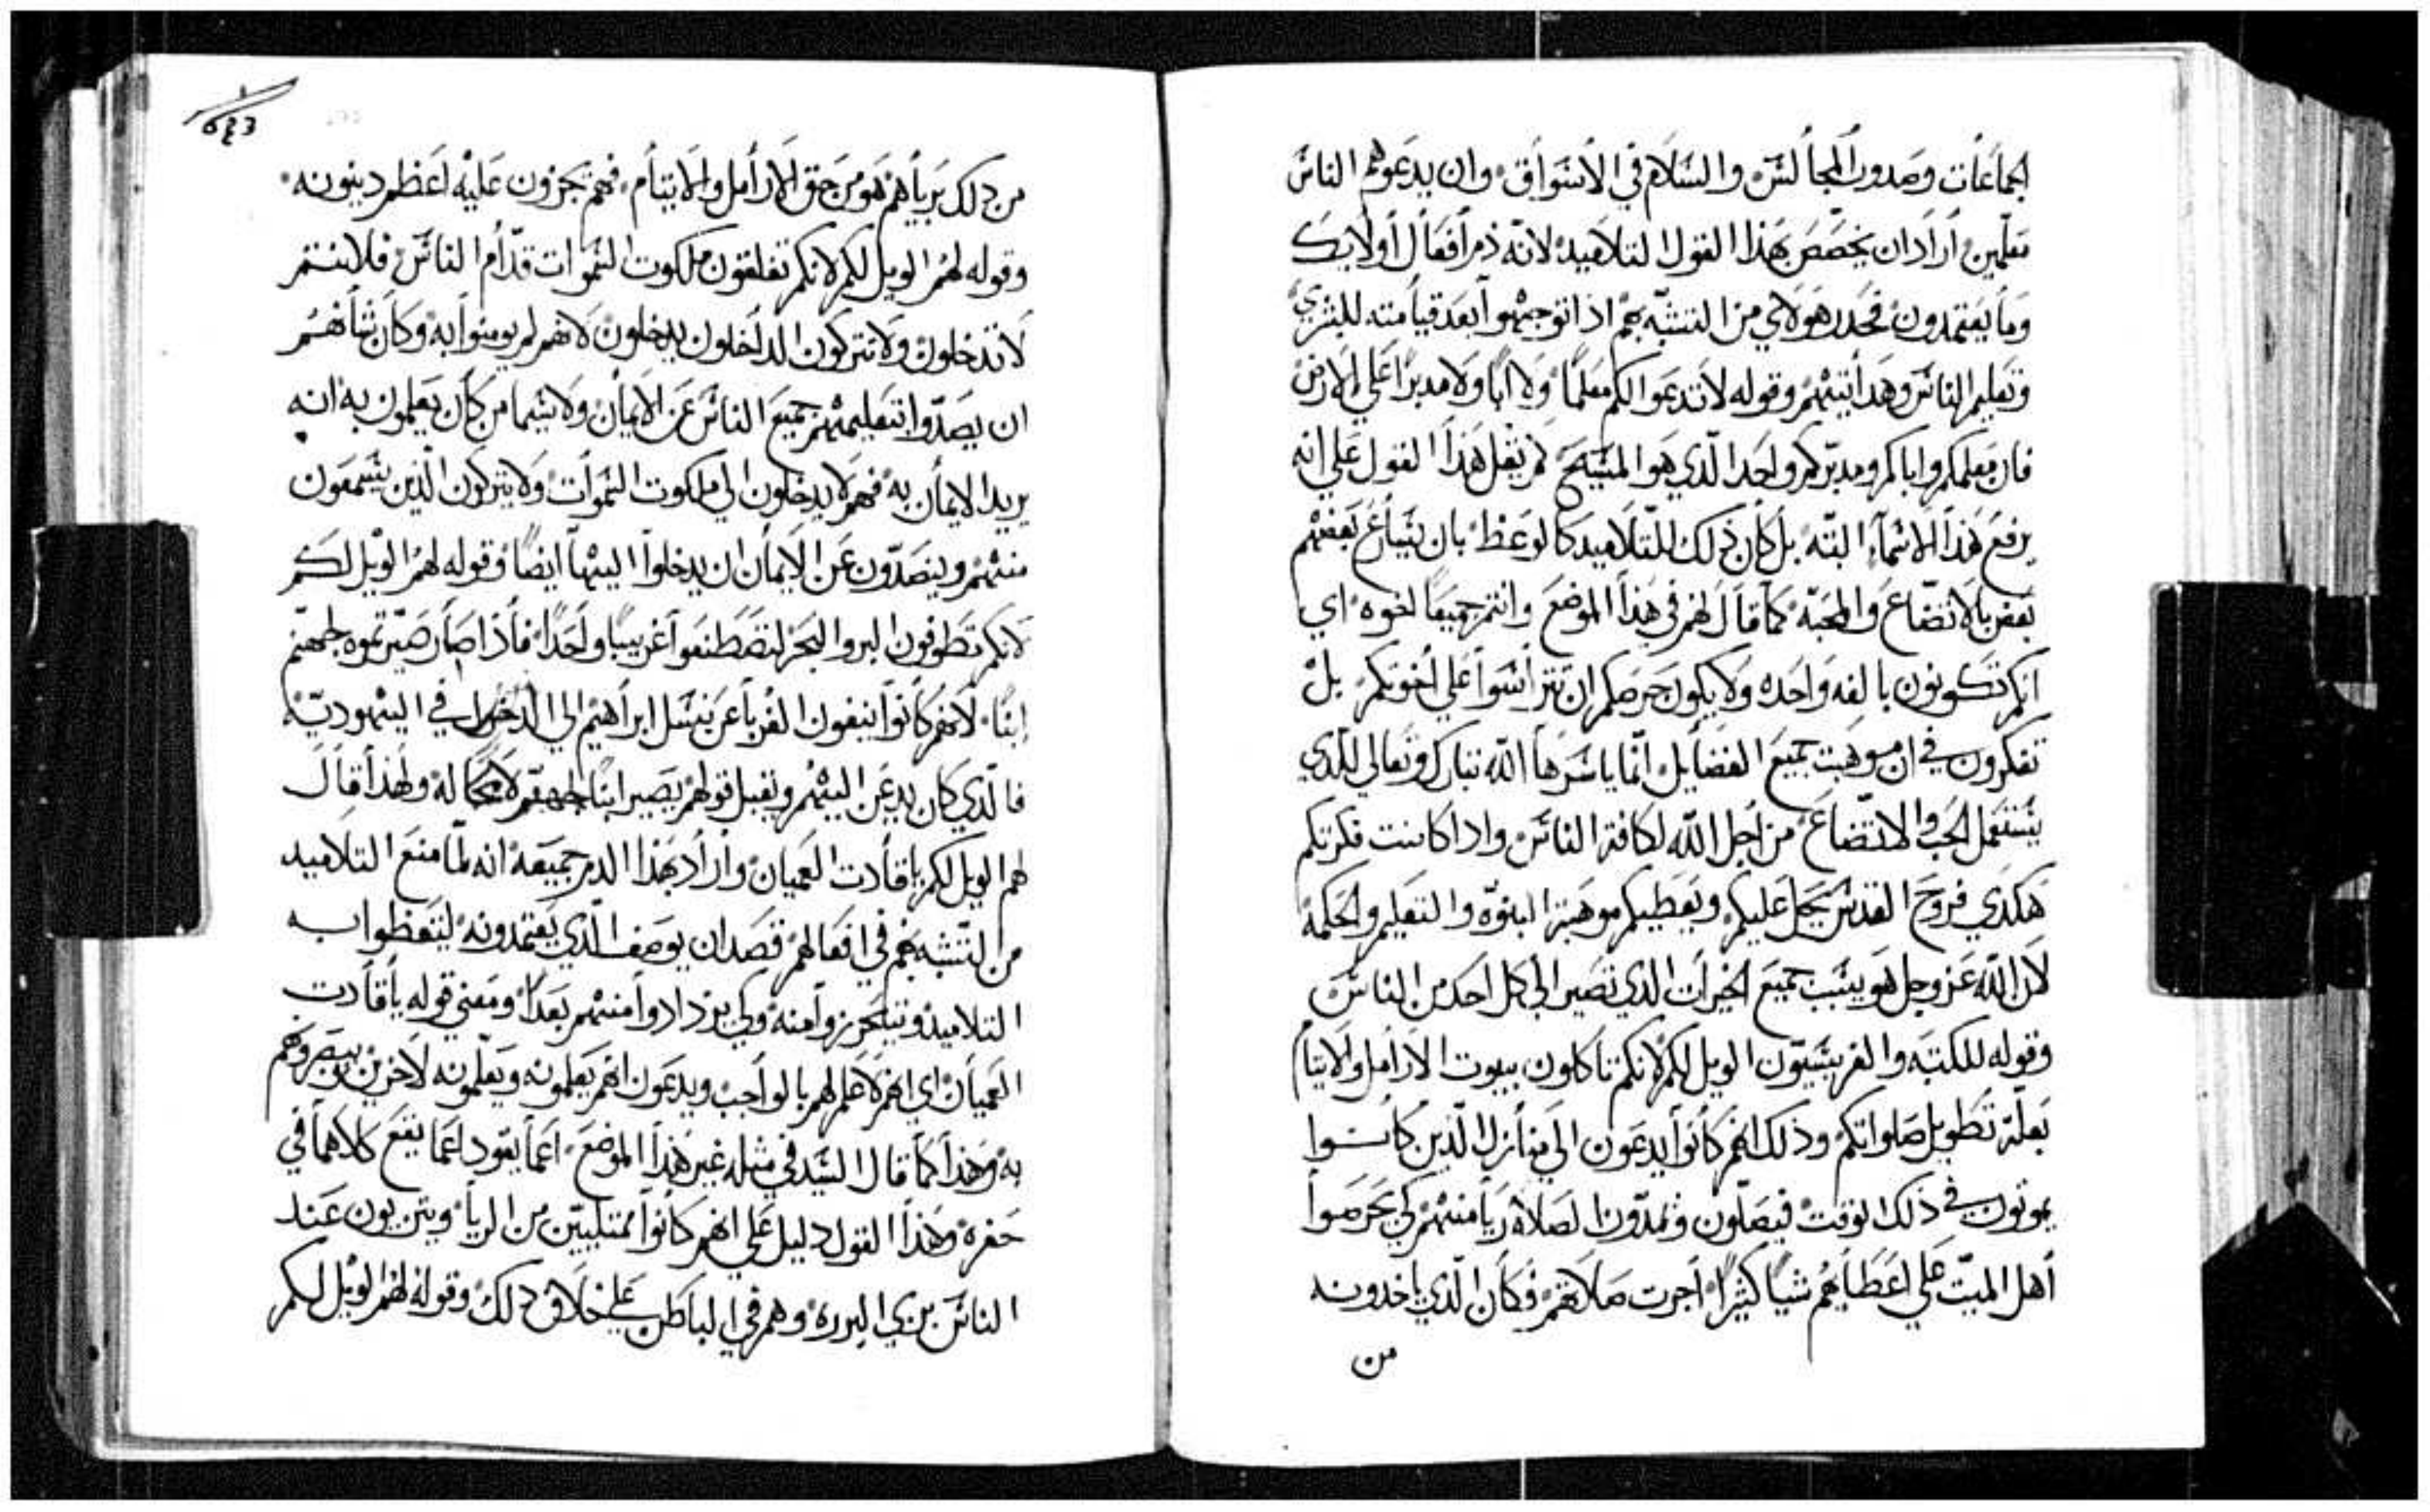 الجماعات وصدور المجالس والسلام في الاسواق وان يدعوهم الناس
معلمين اراد ان يخصص بهذا القول التلاميد لانه ذم افعال اولايك
وما يعتمدون فحدر هولاي من التشبه بهم ادا توجهوا بعد قيامته للبشري
وتعليم الناس وهدا تبنهم وقوله لا تدعوا لكم معلما ولا ابا ولا مدبرا علي الارض
فان معلمكم واباكم ومدبركم واحد الدي هو المسيح لم يقل هذا القول علي انه
يرفع هذا الاسماء البته بل كان ذلك للتلاميد كالوعظ بان يتبارع بعضهم
بعض بالاتضاع والمحبه كما قال لهم في هذا الموضع وانتم جميعا اخوه اي
انكم تكونون بالفه واحده ولا يكون حرصكم ان تتراسوا علي اخوتكم بل
تفكرون في ان موهبت جميع الفضايل انما ياسرها الله تبارك وتعالي للدي
يستعمل الحب والاتضاع من اجل الله لكافة الناس وادا كانت فكرتكم
هكدي فروح القدس يحل عليكم ويعطيكم موهبة البنوة والتعليم والحكمة
لان الله عز وجل هو يسبب جميع الخيرات الدي تصير الي كل احد من الناس
وقوله للكتبه والفريسيون الويل لكم لانكم تاكلون بيوت الارامل والايتام
بعلة تطويل صلواتكم وذلك انهم كانوا يدعون الي منازل الدين كانوا
يموتون في ذلك الوقت فيصلون ويمدون الصلاة ريا منهم لكي يحرصوا
اهل الميت علي اعطايهم شيا كثيرا اجرت صلاتهم فكان الدي ياخدونه
من
٥٤٣
من دلك برياهم هو من حق الارامل والايتام فهم يجزون عليه اعظم دينونه
وقوله لهم الويل لكم لانكم تغلقون ملكوت السموات قدام الناس فلا انتم
لا تدخلون ولا تتركون الداخلون يدخلون لانهم لم يومنوا به وكان شانهم
ان يصدوا بتعليمهم جميع الناس عن الايمان ولا سيما من كان يعلمون به انه
يريد الايمان به فهم لا يدخلون الي ملكوت السموات ولا يتركون الذين يسمعون
منهم ويتصدون عن الايمان ان يدخلوا اليها ايضا وقوله لهم الويل لكم
لانكم تطوفون البر والبحر لتصطنعوا غريبا واحدا فاذا صار صيرتموه لجهنم
ابنا لانهم كانوا ينفون الغربا عن نسل ابراهيم الي الدخول في اليهودية
فالدي كان يدعن اليهم ويقبل قولهم يصير ابنا لجهنم لامحاله ولهذا قال
لهم الويل لكم ياقادت العميان واراد بهذا الدم جميعه انه لما منع التلاميد
من التشبه بهم في افعالهم قصد ان يوصف الذي يعتمدونه ليتعظوا به
التلاميد ويتحرزوا منه ولكي يزدادوا منهم بعدا ومعني قوله ياقادت
العميان اي انهم لا علم لهم بالواجب ويدعون انهم يعلمونه ويعلمونه لاخرين يبصروهم
به وهذا كما قال السيد في مثله غير هذا الموضع اعما يقود اعما يقع كلاهما في
حفرة وهذا القول دليل علي انهم كانوا ممتليين من الريا ويتزيون عند
الناس بزي البررة وهم في الباطن علي خلاف دلك وقوله لهم الويل لكم